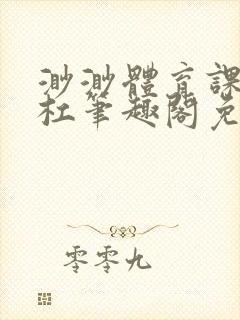 渺渺體育課
杜筆趣閣免
零零九